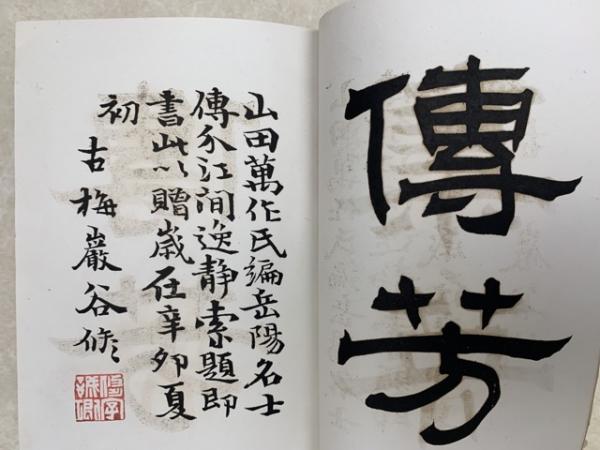 傳芳
山田萬作氏編岳陽名士
傳介江間逸静索題即
書此以贈歳在辛卯夏
初
古梅巖谷修